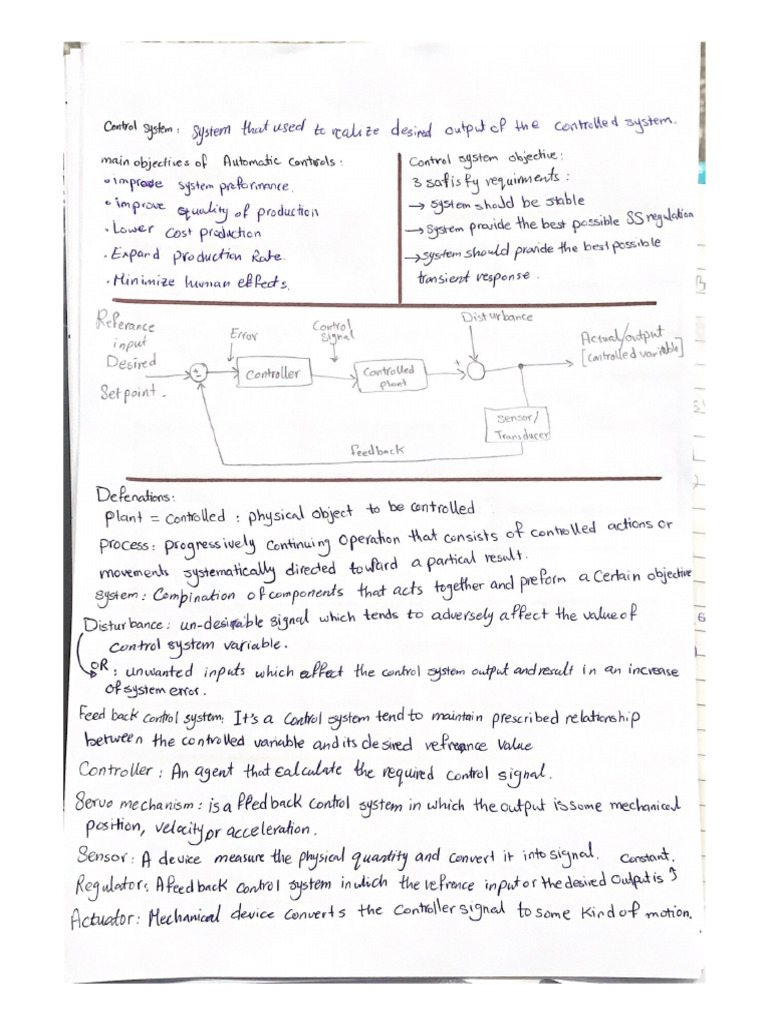 Control system: System that used to realize desired output of the controlled system.
main objectives of Automatic controls:
• improve system preformance.
• improve quality of production
• Lower cost production
• Expand production Rate.
• Minimize human effects.
Control system objective:
3 satisfy requirments:
→ system should be stable
→ System provide the best possible SS regulation
→ system should provide the best possible
transient response.
Referance
input
Desired
Set point.
Error
Control
Signal
Disturbance
Actual/output
[controlled variable]
±
Controller
Controlled
plant
+
Sensor/
Transducer
Feedback
Defenations:
plant = controlled : physical object to be controlled
process: progressively continuing operation that consists of controlled actions or
movements systematically directed toward a partical result.
system: Combination of components that acts together and preform a certain objective
Disturbance: un-desirable signal which tends to adversely affect the value of
control system variable.
OR : unwanted inputs which effect the control system output and result in an increase
of system error.
Feed back control system: It's a control system tend to maintain prescribed relationship
between the controlled variable and its desired refreance value
Controller: An agent that calculate the required control signal.
Servo mechanism: is a feed back control system in which the output is some mechanical
position, velocity or acceleration.
Sensor: A device measure the physical quantity and convert it into signal.
Regulator: A feed back control system in which the refrence input or the desired output is constant.
Actuator: Mechanical device converts the controller signal to some kind of motion.